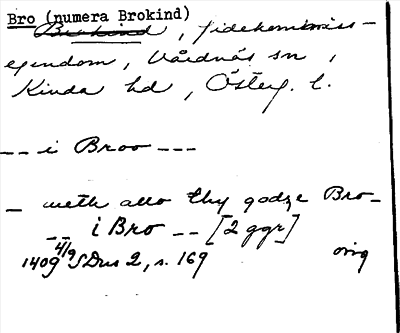 Bro (numera Brokind)
Brokind, fideikommiss-
egendom, Vårdnäs sn,
Kinda hd, Österg. l.
-- i Broo ---
- meth allo thy godze Bro-
-- i Bro -- [2 ggr]
1409 4/9 SDns 2, s. 169 orig